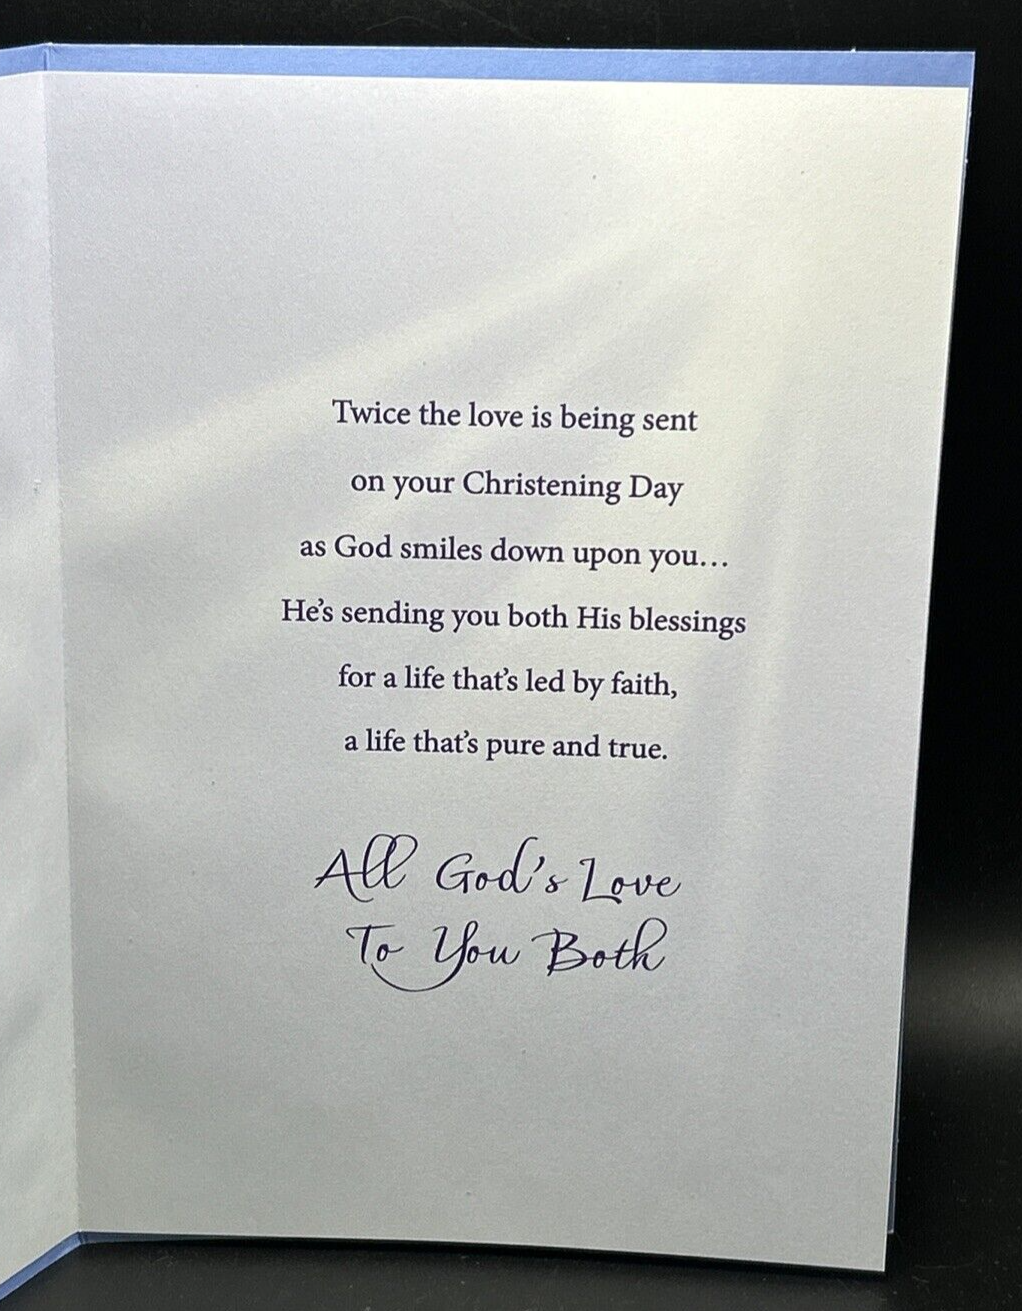 Twice the love is being sent
on your Christening Day
as God smiles down upon you...
He's sending you both His blessings
for a life that's led by faith,
a life that's pure and true.
All God's Love
To You Both